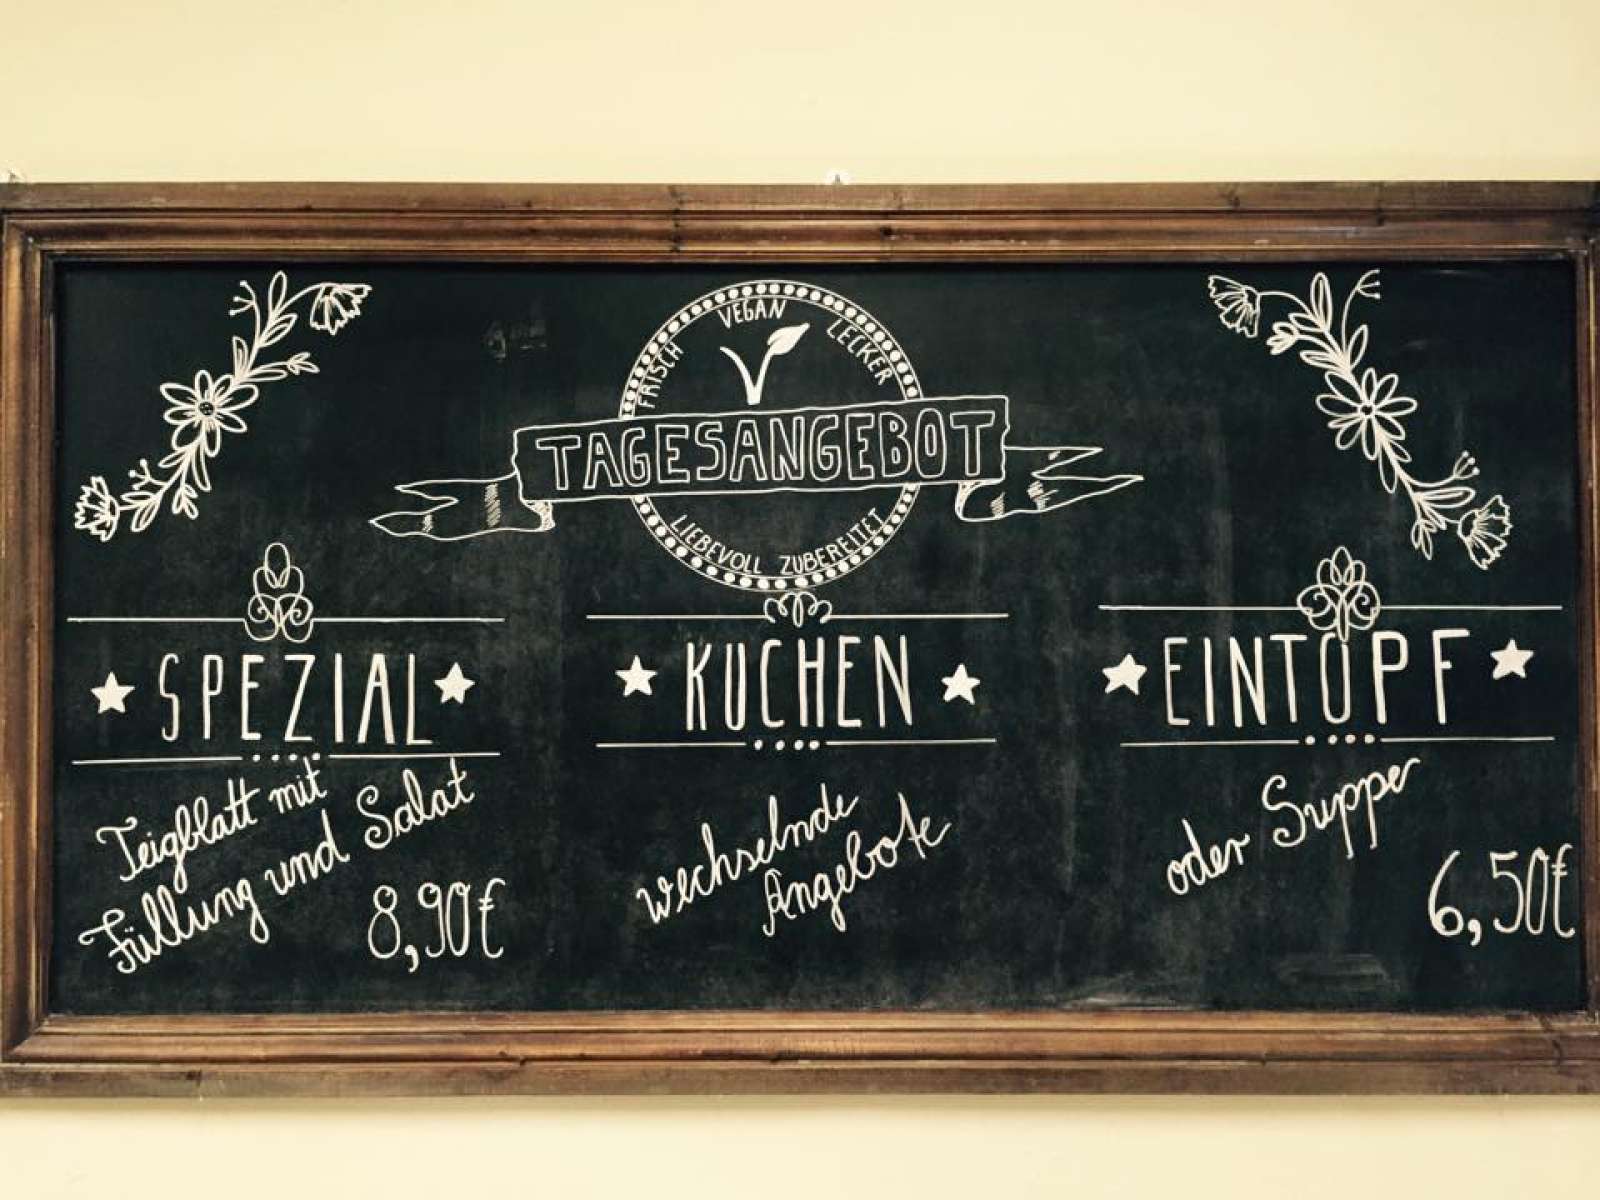 FRISCH VEGAN LECKER
TAGESANGEBOT
LIEBEVOLL ZUBEREITET
SPEZIAL
Teigblatt mit
Füllung und Salat
8,90€
KUCHEN
wechselnde
Angebote
EINTOPF
oder Suppe
6,50€